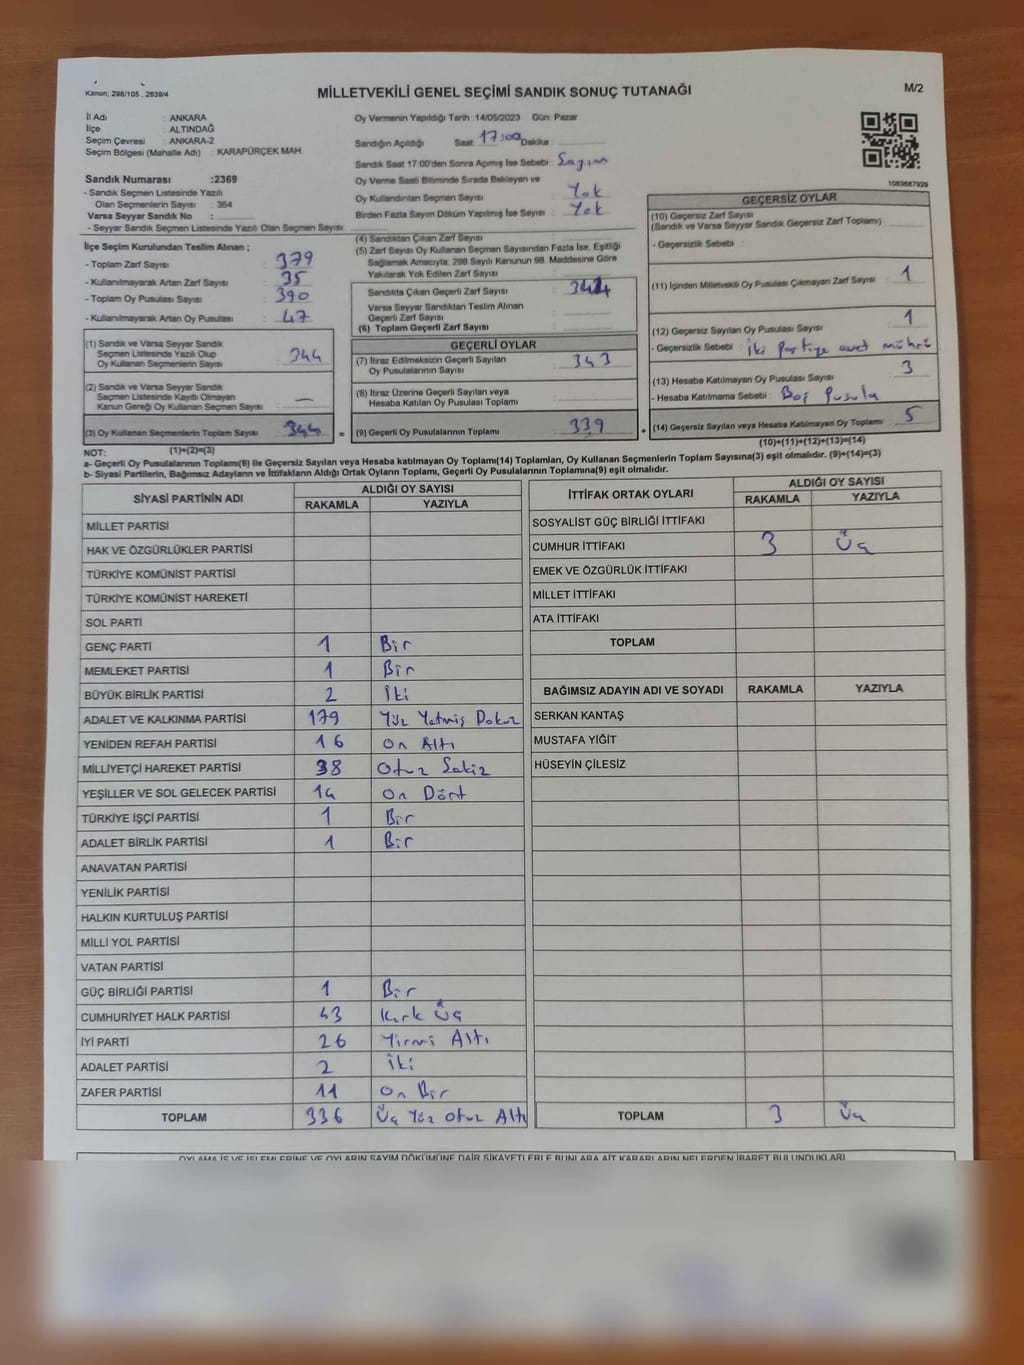 Kanun; 298/105 , 2839/4
MİLLETVEKİLİ GENEL SEÇİMİ SANDIK SONUÇ TUTANAĞI
M/2
İl Adı : ANKARA
İlçe : ALTINDAĞ
Seçim Çevresi : ANKARA-2
Seçim Bölgesi (Mahalle Adı) : KARAPÜRÇEK MAH.
Sandık Numarası :2369
- Sandık Seçmen Listesinde Yazılı
Olan Seçmenlerin Sayısı : 364
Varsa Seyyar Sandık No :
- Seyyar Sandık Seçmen Listesinde Yazılı Olan Seçmen Sayısı:
Oy Vermenin Yapıldığı Tarih :14/05/2023 Gün: Pazar
Sandığın Açıldığı Saat 17:00 Dakika :
Sandık Saat 17:00'den Sonra Açılmış İse Sebebi: Sayım
Oy Verme Saati Bitiminde Sırada Bekleyen ve
Oy Kullandırılan Seçmen Sayısı : Yok
Birden Fazla Sayım Döküm Yapılmış İse Sayısı : Yok
1083687929
İlçe Seçim Kurulundan Teslim Alınan ;
- Toplam Zarf Sayısı : 379
- Kullanılmayarak Artan Zarf Sayısı : 35
- Toplam Oy Pusulası Sayısı : 390
- Kullanılmayarak Artan Oy Pusulası : 47
(1) Sandık ve Varsa Seyyar Sandık
Seçmen Listesinde Yazılı Olup
Oy Kullanan Seçmenlerin Sayısı : 344
(2) Sandık ve Varsa Seyyar Sandık
Seçmen Listesinde Kayıtlı Olmayan
Kanun Gereği Oy Kullanan Seçmen Sayısı : —
(3) Oy Kullanan Seçmenlerin Toplam Sayısı : 344 =
(4) Sandıktan Çıkan Zarf Sayısı :
(5) Zarf Sayısı Oy Kullanan Seçmen Sayısından Fazla İse, Eşitliği
Sağlamak Amacıyla, 298 Sayılı Kanunun 98. Maddesine Göre
Yakılarak Yok Edilen Zarf Sayısı :
Sandıkta Çıkan Geçerli Zarf Sayısı : 344
Varsa Seyyar Sandıktan Teslim Alınan
Geçerli Zarf Sayısı :
(6) Toplam Geçerli Zarf Sayısı :
GEÇERLİ OYLAR
(7) İtiraz Edilmeksizin Geçerli Sayılan
Oy Pusulalarının Sayısı : 343
(8) İtiraz Üzerine Geçerli Sayılan veya
Hesaba Katılan Oy Pusulası Toplamı :
(9) Geçerli Oy Pusulalarının Toplamı : 339 +
GEÇERSİZ OYLAR
(10) Geçersiz Zarf Sayısı
(Sandık ve Varsa Seyyar Sandık Geçersiz Zarf Toplamı) :
- Geçersizlik Sebebi :
(11) İçinden Milletvekili Oy Pusulası Çıkmayan Zarf Sayısı : 1
(12) Geçersiz Sayılan Oy Pusulası Sayısı : 1
- Geçersizlik Sebebi : İki Partiye evet mührü
(13) Hesaba Katılmayan Oy Pusulası Sayısı : 3
- Hesaba Katılmama Sebebi : Boş Pusula
(14) Geçersiz Sayılan veya Hesaba Katılmayan Oy Toplamı : 5
NOT: (1)+(2)=(3) (10)+(11)+(12)+(13)=(14)
a- Geçerli Oy Pusulalarının Toplamı(9) ile Geçersiz Sayılan veya Hesaba katılmayan Oy Toplamı(14) Toplamları, Oy Kullanan Seçmenlerin Toplam Sayısına(3) eşit olmalıdır. (9)+(14)=(3)
b- Siyasi Partilerin, Bağımsız Adayların ve İttifakların Aldığı Ortak Oyların Toplamı, Geçerli Oy Pusulalarının Toplamına(9) eşit olmalıdır.
SİYASİ PARTİNİN ADI ALDIĞI OY SAYISI
RAKAMLA YAZIYLA
MİLLET PARTİSİ
HAK VE ÖZGÜRLÜKLER PARTİSİ
TÜRKİYE KOMÜNİST PARTİSİ
TÜRKİYE KOMÜNİST HAREKETİ
SOL PARTİ
GENÇ PARTİ 1 Bir
MEMLEKET PARTİSİ 1 Bir
BÜYÜK BİRLİK PARTİSİ 2 İki
ADALET VE KALKINMA PARTİSİ 179 Yüz Yetmiş Dokuz
YENİDEN REFAH PARTİSİ 16 On Altı
MİLLİYETÇİ HAREKET PARTİSİ 38 Otuz Sekiz
YEŞİLLER VE SOL GELECEK PARTİSİ 14 On Dört
TÜRKİYE İŞÇİ PARTİSİ 1 Bir
ADALET BİRLİK PARTİSİ 1 Bir
ANAVATAN PARTİSİ
YENİLİK PARTİSİ
HALKIN KURTULUŞ PARTİSİ
MİLLİ YOL PARTİSİ
VATAN PARTİSİ
GÜÇ BİRLİĞİ PARTİSİ 1 Bir
CUMHURİYET HALK PARTİSİ 43 Kırk Üç
İYİ PARTİ 26 Yirmi Altı
ADALET PARTİSİ 2 İki
ZAFER PARTİSİ 11 On Bir
TOPLAM 336 Üç Yüz Otuz Altı
İTTİFAK ORTAK OYLARI ALDIĞI OY SAYISI
RAKAMLA YAZIYLA
SOSYALİST GÜÇ BİRLİĞİ İTTİFAKI
CUMHUR İTTİFAKI 3 Üç
EMEK VE ÖZGÜRLÜK İTTİFAKI
MİLLET İTTİFAKI
ATA İTTİFAKI
TOPLAM
BAĞIMSIZ ADAYIN ADI VE SOYADI RAKAMLA YAZIYLA
SERKAN KANTAŞ
MUSTAFA YİĞİT
HÜSEYİN ÇİLESİZ
TOPLAM 3 Üç
OYLAMA İŞ VE İŞLEMLERİNE VE OYLARIN SAYIM DÖKÜMÜNE DAİR ŞİKAYETLERLE BUNLARA AİT KARARLARIN NELERDEN İBARET BULUNDUKLARI